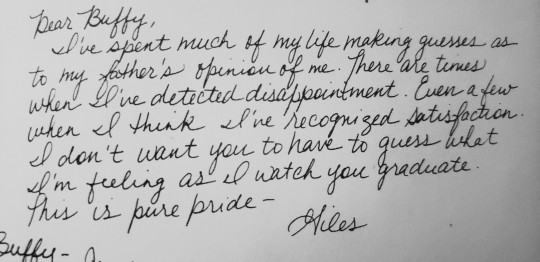 Dear Buffy,
I've spent much of my life making guesses as
to my father's opinion of me. There are times
when I've detected disappointment. Even a few
when I think I've recognized satisfaction.
I don't want you to have to guess what
I'm feeling as I watch you graduate.
This is pure pride-
Giles
Buffy-